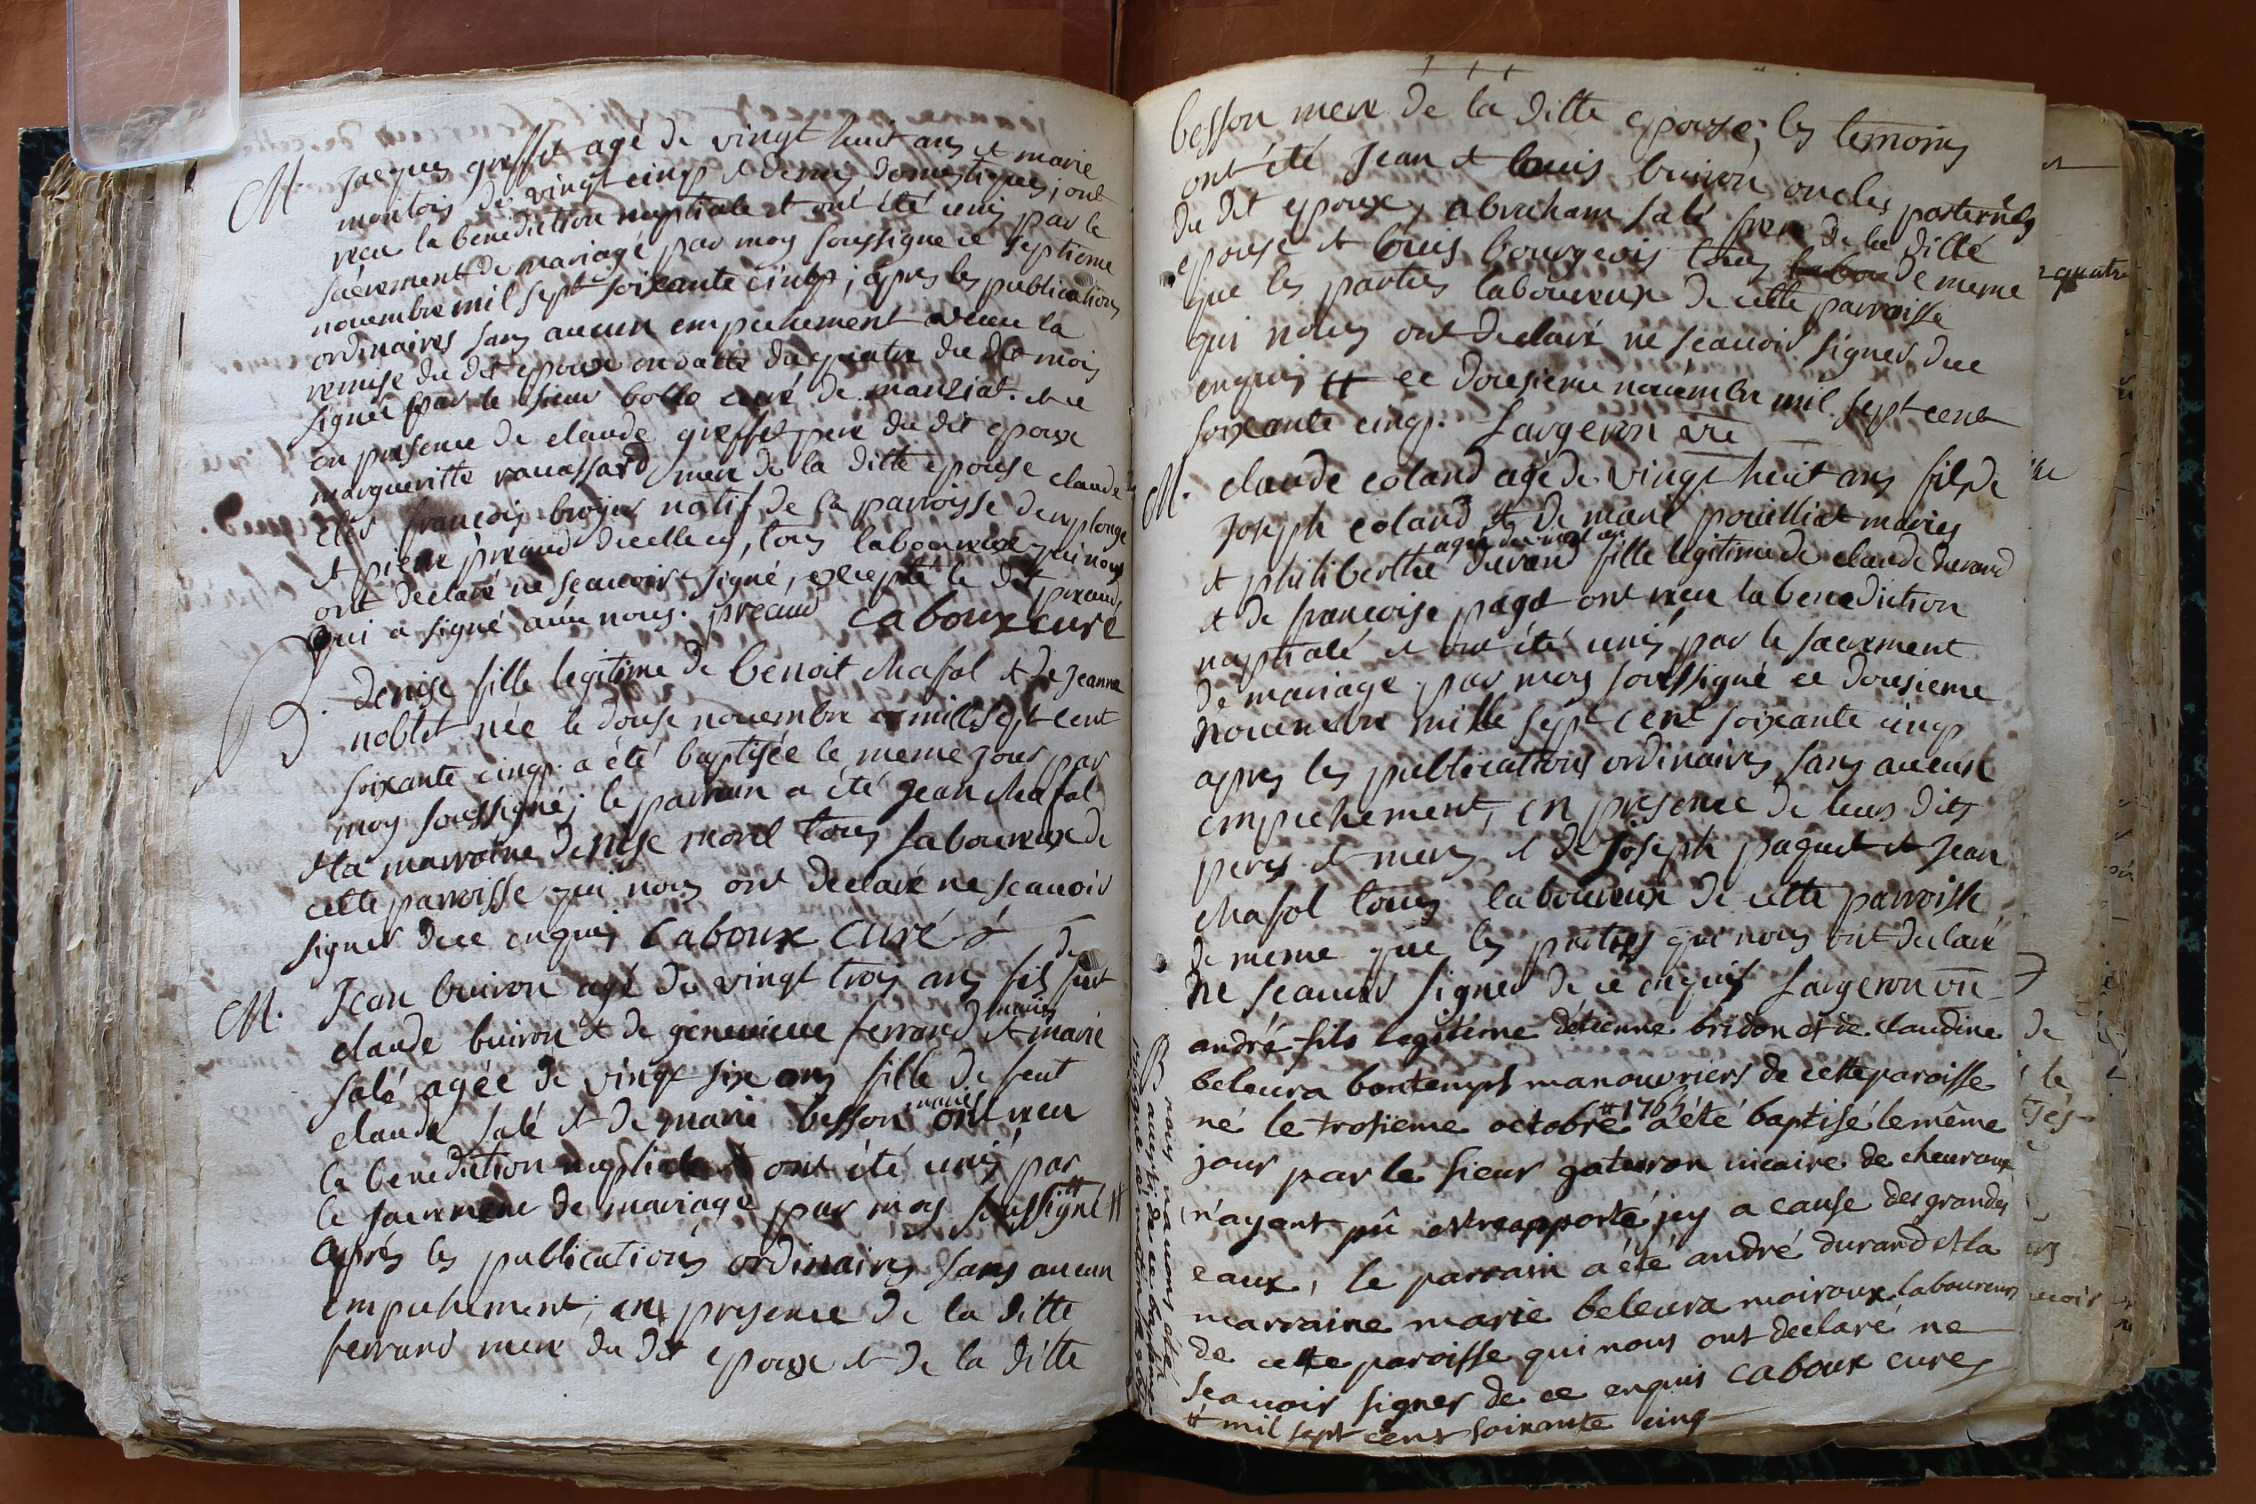 M. Jacques greffet agé de vingt huit ans et marie
montois de vingt cinq et demis domestiques, ont
receu la benediction nuptiale et ont été unis par le
sacrement de mariage par moy soussigné ce septieme
novembre mil sept soixante cinq; apres les publications
ordinaires sans aucun empechement veue la
remise du dit epoux en datte du quatre du dit mois
signée par le sieur botto curé de manziat. et ce
en presence de claude greffet pere du dit epoux
margueritte ravassard mere de la ditte epouse claude
françois broyer natif de la parroisse de replonge
et pierre preaud d'icelle, tous laboureux qui nous
ont declaré ne scauoir signé, excepté le dit preaud
qui a signé avec nous. preaud caboux curé
B. denise fille legitime de benoit Mafol et de jeanne
noblet née le douse nouembre mille sept cent
soixante cinq. a été baptisée le meme jour par
moy soussigné; le parrain a été Jean Mafol
et la marraine denise morel tous laboureux de
cette parroisse qui nous ont declaré ne scauoir
signer de ce enquis caboux curé
M. Jean buiron agé de vingt trois ans fils de feut
claude buiron et de genevieve ferrand mariés et marie
salé agée de vingt six ans fille de feut
claude salé et de marie besson mariés ont receu
la benediction nuptiale et ont été unis par
le sacrement de mariage par moy soussigné #
après les publications ordinaires sans aucun
empechement; en presence de la ditte
ferrand mere du dit epoux et de la ditte
besson mere de la ditte epouse; les temoins
ont été Jean et louis buiron oncles paternels
du dit epoux, abraham salé frere de la ditte
epouse et louis bourgeois tous de meme
que les parties laboureux de cette parroisse
qui nous ont declaré ne scauoir signer de ce
enquis # ce douzieme nouembre mil sept cent
soixante cinq. Largeron vre
M. claude coland agé de vingt huit ans fils de
Joseph coland et de marie pouilliat mariés
et philiberthe durand fille legitime de claude durand
et de françoise paget ont receu la benediction
nuptiale et ont été unis par le sacrement
de mariage par moy soussigné ce dousieme
nouembre mille sept cent soixante cinq
apres les publications ordinaires sans aucun
empechement, en presence de leurs dits
peres et meres et de Joseph paquet et Jean
Mafol tous laboureux de cette parroisse
de meme que les parties qui nous ont declaré
ne scauoir signer de ce enquis Largeron vre
andré fils legitime d'etienne bridon et de claudine
beleura bontemps manouvriers de cette paroisse
né le troisieme octobre # 1765 a été baptisé le même
jour par le sieur gateron uicaire de cheuroux
n'ayant pû estre apporté jcy a cause des grandes
eaux, le parrain a été andré durand et la
marraine marie beleura moiroux laboureurs
de cette paroisse qui nous ont declaré ne
scauoir signer de ce enquis caboux curé
# mil sept cent soixante cinq